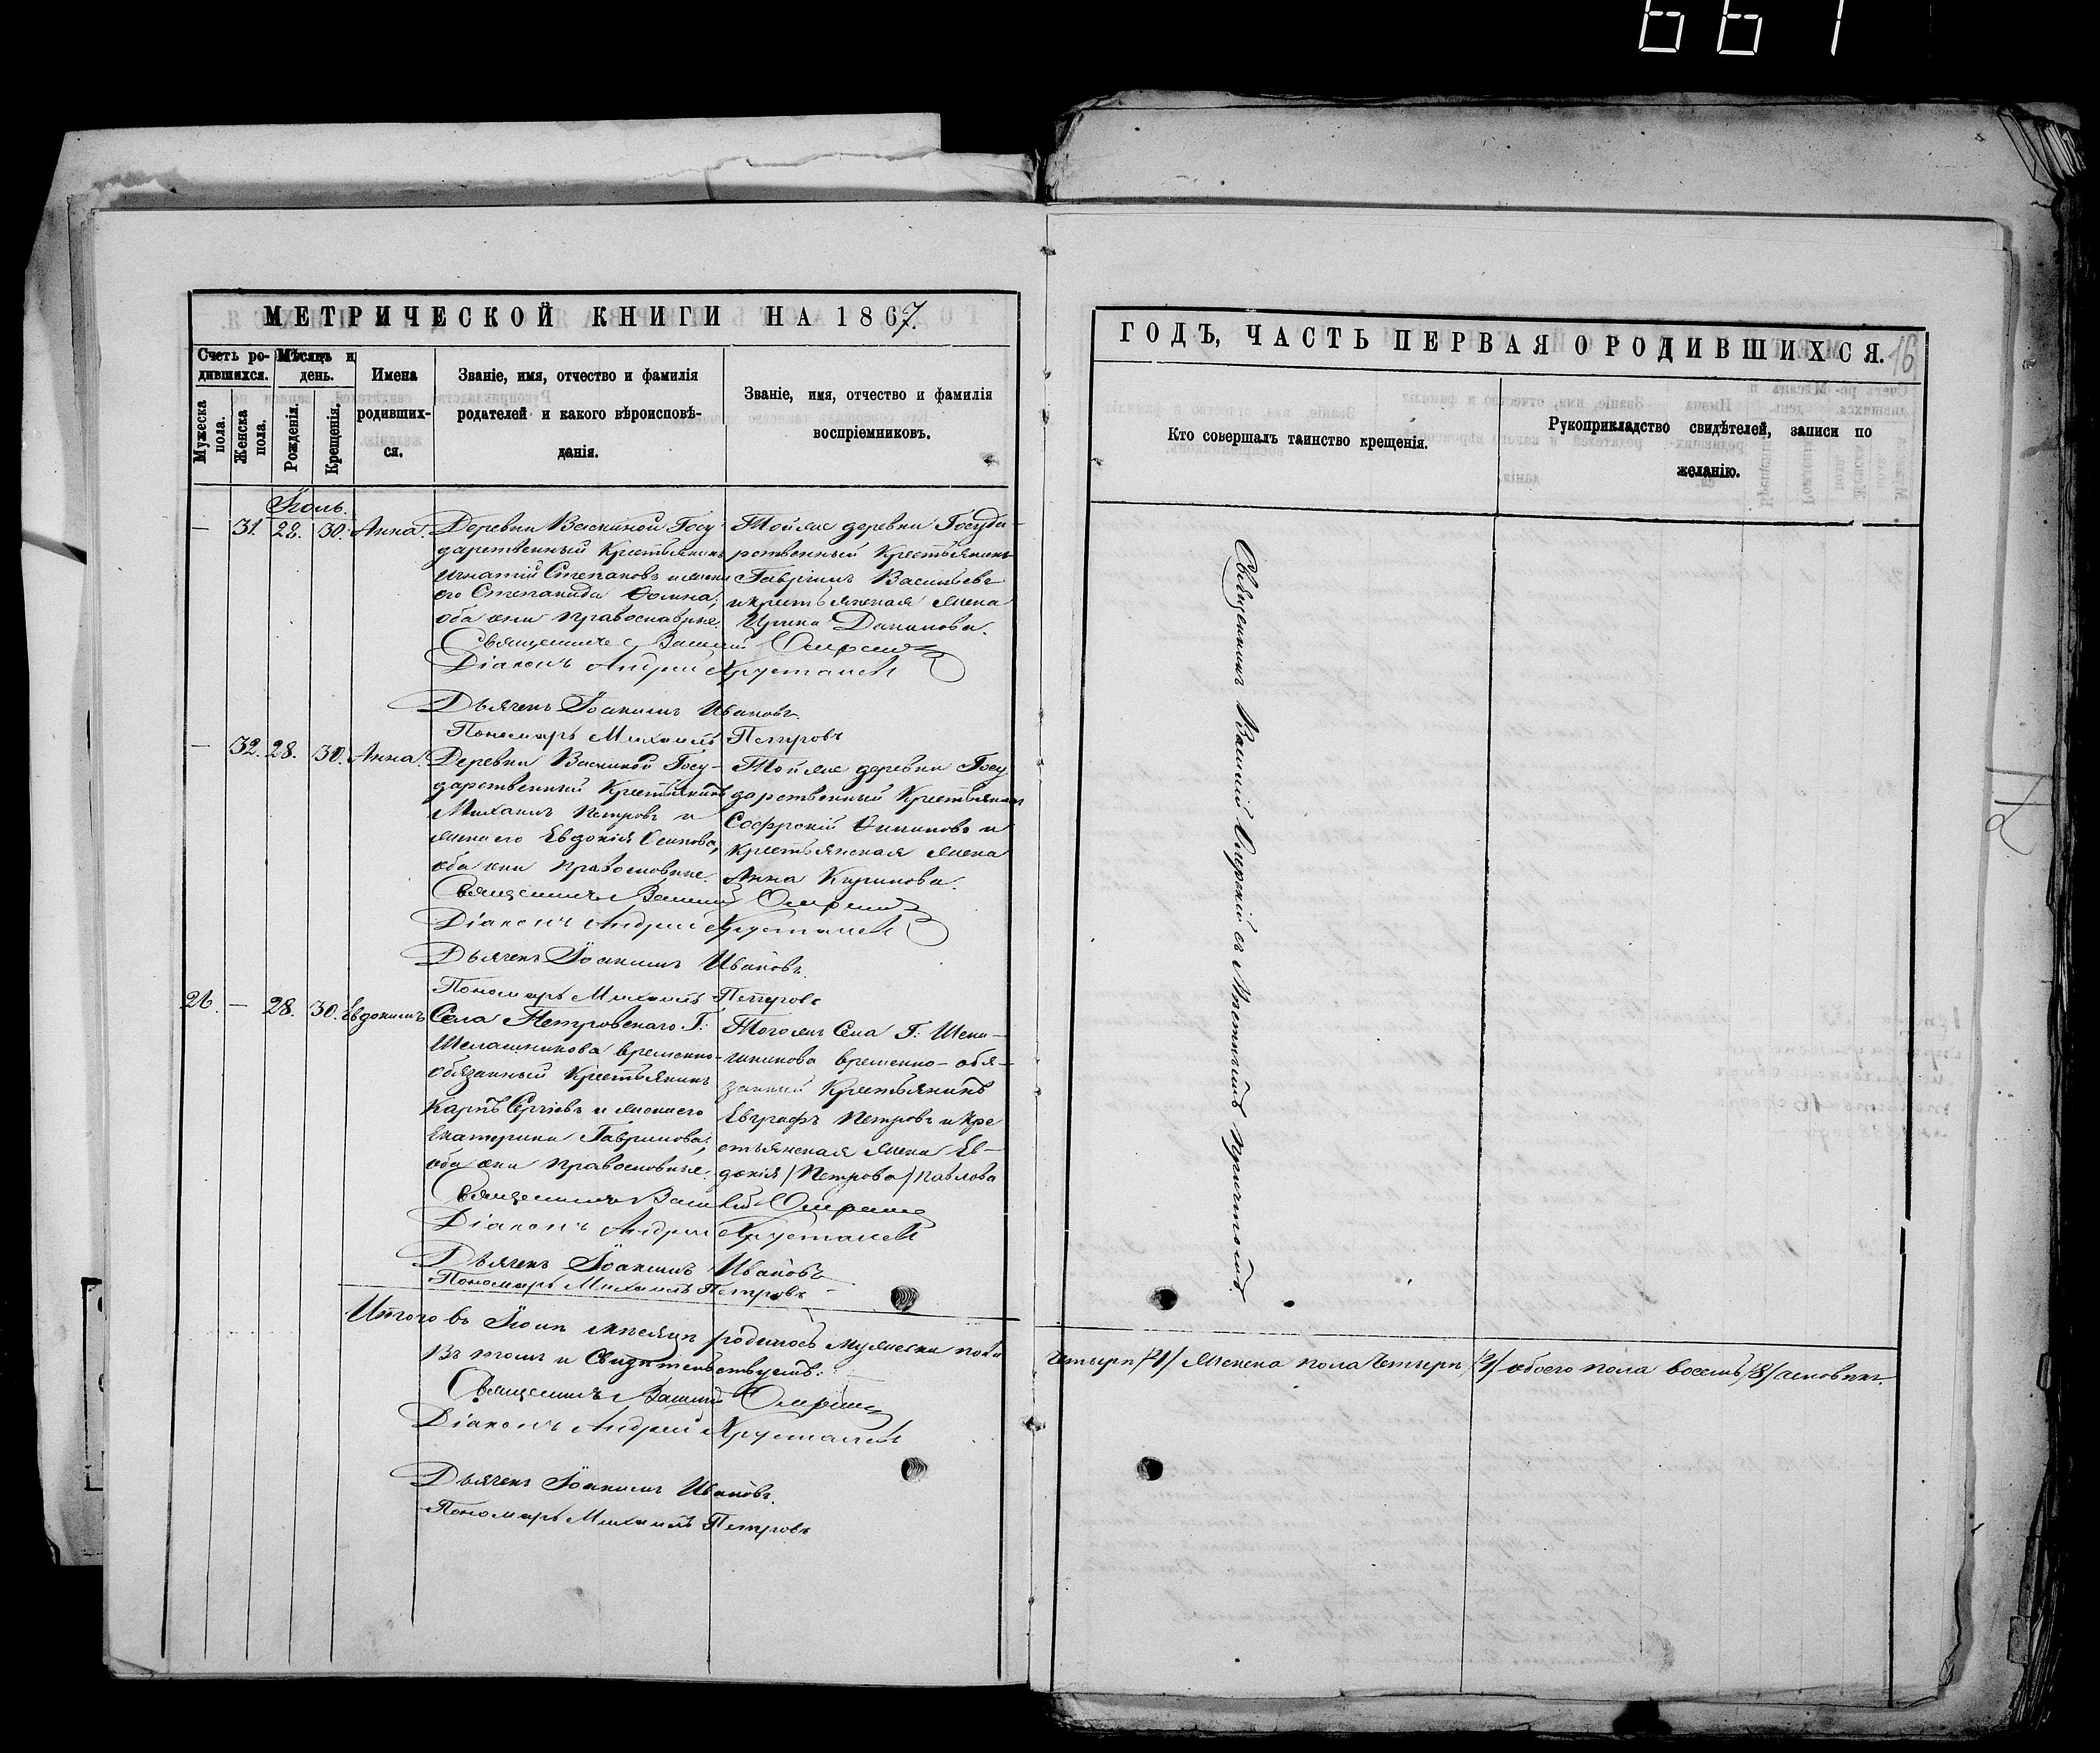 661
МЕТРИЧЕСКОЙ КНИГИ НА 1867.
Счетъ ро-
дившихся.
Мѣсяцъ и
день.
Мужеска
пола.
Женска
пола.
Рожденія.
Крещенія.
Имена
родивших-
ся.
Званіе, имя, отчество и фамилія
родателей и какого вѣроисповѣ-
данія.
Званіе, имя, отчество и фамилія
воспріемниковъ.
— 31. 28. 30. Анна.
Деревни Госу
дарственный Крестьянинъ
Игнатій Степановъ и жена
его Степанида
оба они православные.
Тойже деревни Госуда-
рственный Крестьянинъ
Гавріилъ Васильевъ
и крестьянская жена
Ирина Данилова.
Священникъ Василій
Діаконъ Андрей Хрусталевъ
Дьячекъ Іоакимъ Ивановъ.
Пономарь Михаилъ Петровъ
— 32. 28. 30. Анна.
Деревни Госу-
дарственный Крестьянинъ
Михаилъ Петровъ и
жена его Евдокія Осипова,
оба они православные.
Тойже деревни Госу
дарственный Крестьянинъ
Софроній и
крестьянская жена
Анна Кирилова.
Священникъ Василій
Діаконъ Андрей Хрусталевъ
Дьячекъ Іоакимъ Ивановъ.
Пономарь Михаилъ Петровъ
— 28. 30. Евдокимъ
Села Петровскаго Г:
Шелашникова временно-
обязанный Крестьянинъ
Карпъ Сергіевъ и жена его
Екатерина Гаврилова,
оба они православные.
Тогоже Села Г: Шела-
шникова временно-обя-
занный Крестьянинъ
Евграфъ Петровъ и кре
стьянская жена Ев-
докія /Петрова/ Павлова
Священникъ Василій
Діаконъ Андрей Хрусталевъ
Дьячекъ Іоакимъ Ивановъ
Пономарь Михаилъ Петровъ
Итого въ мѣсяцѣ родилось мужеска пола
Въ томъ и Свидѣтельствуетъ:
Священникъ Василій
Діаконъ Андрей Хрусталевъ
Дьячекъ Іоакимъ Ивановъ.
Пономарь Михаилъ Петровъ
ГОДЪ, ЧАСТЬ ПЕРВАЯ О РОДИВШИХСЯ. 16
Кто совершалъ таинство крещенія.
Рукоприкладство свидѣтелей, записи по
желанію.
Священникъ Василій съ Мѣстнымъ Причтомъ.
четыре /4/ женска пола четыре /4/ обоего пола восемь /8/ человѣкъ.